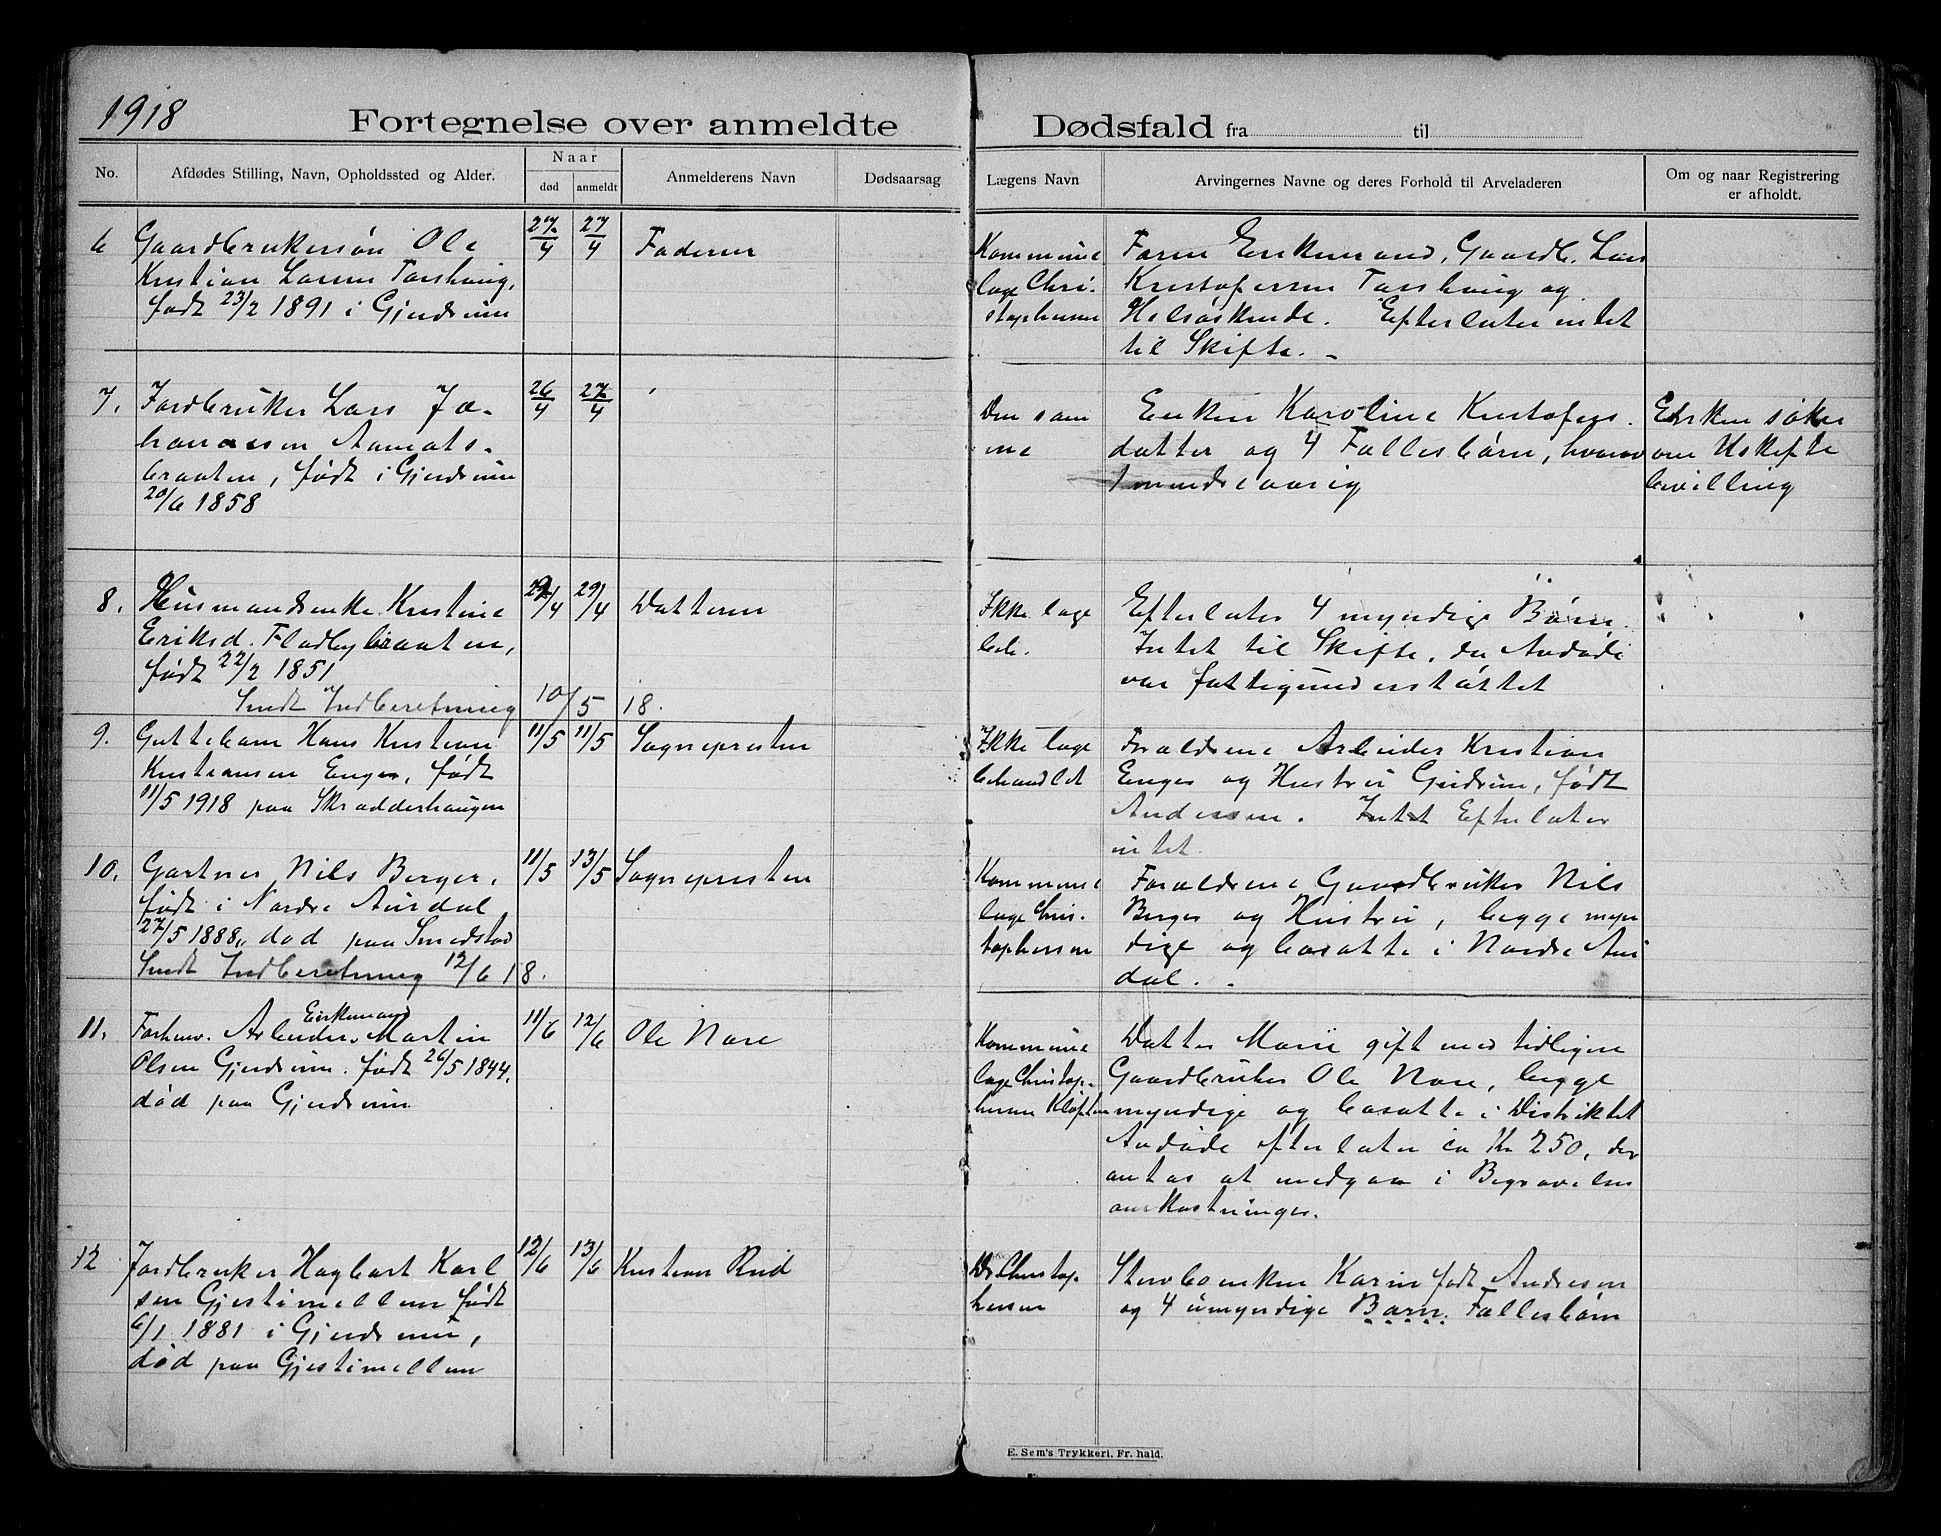 1918
Fortegnelse over anmeldte Dødsfald fra til
No.
Afdødes Stilling, Navn, Opholdssted og Alder.
Naar
død anmeldt
Anmelderens Navn
Dødsaarsag
Lægens Navn
Arvingernes Navne og deres Forhold til Arveladeren
Om og naar Registrering
er afholdt.
6 Gaardbrukersøn Ole
Kristian Larsen
født 23/2 1891 i Gjerdrum
27/4 27/4 Faderen
Kommune
læge Chri-
stophersen
Faren Enkemand, Gaardb. Lars
Kristofersen og
Helsøskende. Efterlater intet
til Skifte. -
7. Jordbruker Lars Jo-
hannessen Aamots-
braaten, født i Gjerdrum
20/6 1858
26/4 27/4
Den sam
me
Enken Karoline Kristofers-
datter og 4 Fællesbørn, hvorav
1 mindreaarig
Enken søker
om Uskifte
bevilling
8. Husmandsenke Kristine
Eriksd. Fladbybraaten,
født 22/2 1851
29/4 29/4 Datteren
Ikke læge
beh.
Efterlater 4 myndige Børn.
Intet til Skifte, da Avdøde
var fattigunderstøttet
Sendt Indberetning 10/5 18.
9. Guttebarn Hans Kristian
Kristiansen Enger, født
11/5 1918 paa Skrædderhaugen
11/5 11/5 Sognepresten
Ikke læge
behandlet
Forældrene Arbeider Kristian
Enger og Hustru Gudrun, født
Andersen. Intet Efterlater
intet.
10. Gartner Nils Berger,
født i Nordre Aurdal
27/5 1888, død paa Smedstad
11/5 13/5 Sognepresten
Kommune
læge Chris-
tophersen
Forældrene Gaardbruker Nils
Berger og Hustru, begge myn
dige og bosatte i Nordre Aur
dal. .
Sendt Indberetning 12/6 18.
11. Forhenv. Arbeider, Enkemand Martin
Olsen Gjerdrum. født 26/5 1844,
død paa Gjerdrum
11/6 12/6 Ole Nare
Kommune
læge Christop-
hersen Kløften
Datter Marie gift med tidligere
Gaardbruker Ole Nare, begge
myndige og bosatte i Distriktet
Avdøde efterlater ca Kr 250, der
antas at medgaa i Begravelses
omkostninger.
12 Jordbruker Hagbart Karl
sen Gjestimellem født
6/1 1881 i Gjerdrum,
død paa Gjestimellem
12/6 13/6 Kristian Rud
Dr Christop
hersen
Stervboenken Karin født Andresen
og 4 umyndige Børn. Fællesbørn
E. Sem's Trykkeri. Fr. hald.